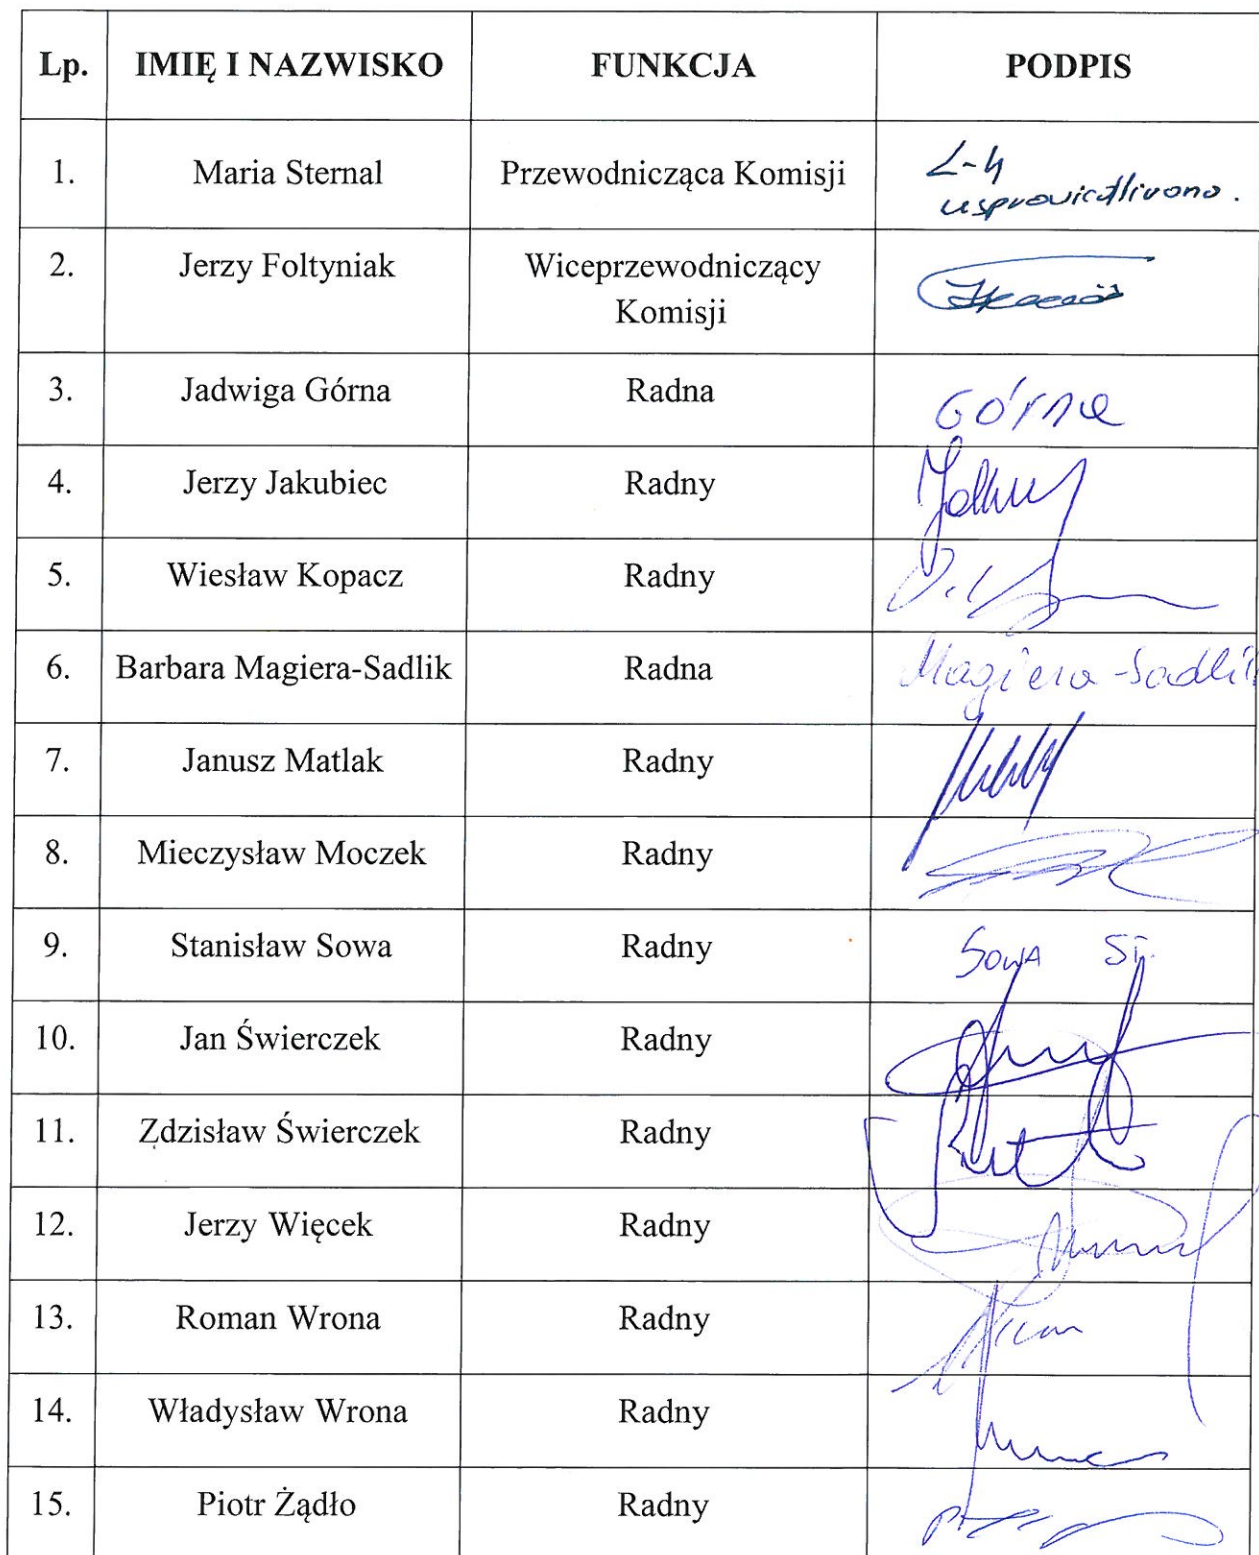 Lp. IMIĘ I NAZWISKO FUNKCJA PODPIS
1. Maria Sternal Przewodnicząca Komisji L-4
usprawiedliwiono.
2. Jerzy Foltyniak Wiceprzewodniczący
Komisji
3. Jadwiga Górna Radna Górna
4. Jerzy Jakubiec Radny
5. Wiesław Kopacz Radny
6. Barbara Magiera-Sadlik Radna Magiera-Sadlik
7. Janusz Matlak Radny
8. Mieczysław Moczek Radny
9. Stanisław Sowa Radny Sowa St.
10. Jan Świerczek Radny
11. Zdzisław Świerczek Radny
12. Jerzy Więcek Radny
13. Roman Wrona Radny
14. Władysław Wrona Radny
15. Piotr Żądło Radny